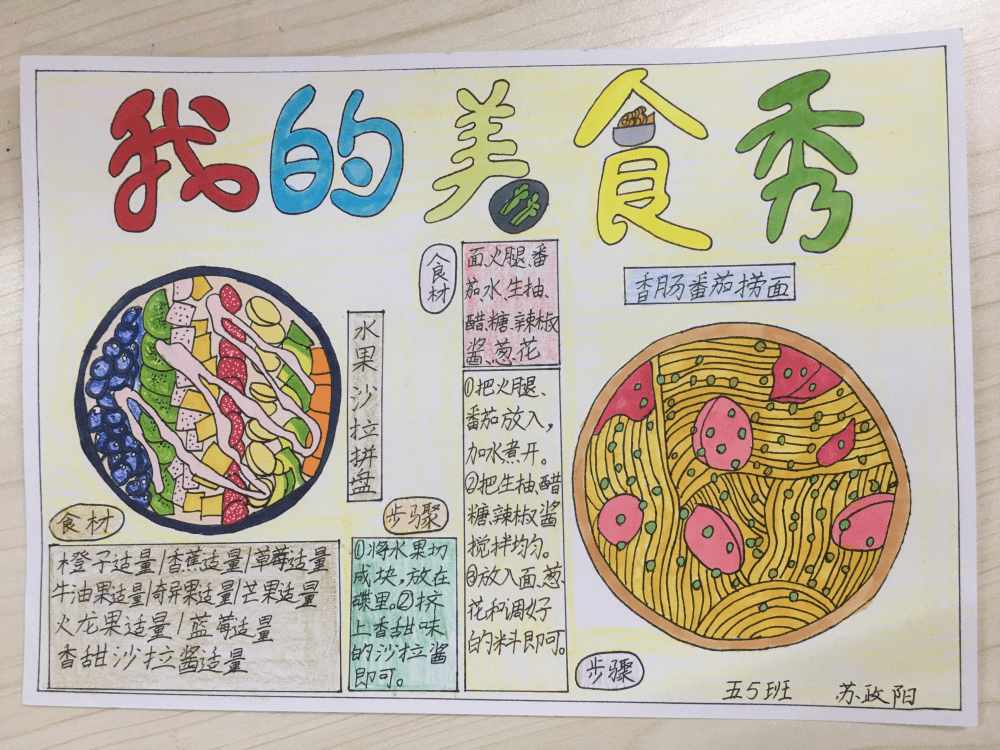 我的美食秀
水果沙拉拼盘
食材
橙子适量/香蕉适量/草莓适量
牛油果适量/奇异果适量/芒果适量
火龙果适量/蓝莓适量
香甜沙拉酱适量
步骤
①将水果切
成块,放在
碟里。②挤
上香甜味
的沙拉酱
即可。
食材
面、火腿、番
茄、水、生抽、
醋、糖、辣椒
酱、葱花
①把火腿、
番茄放入,
加水煮开。
②把生抽、醋
糖、辣椒酱
搅拌均匀。
③放入面、葱
花和调好
的料即可。
步骤
香肠番茄捞面
五5班 苏政阳